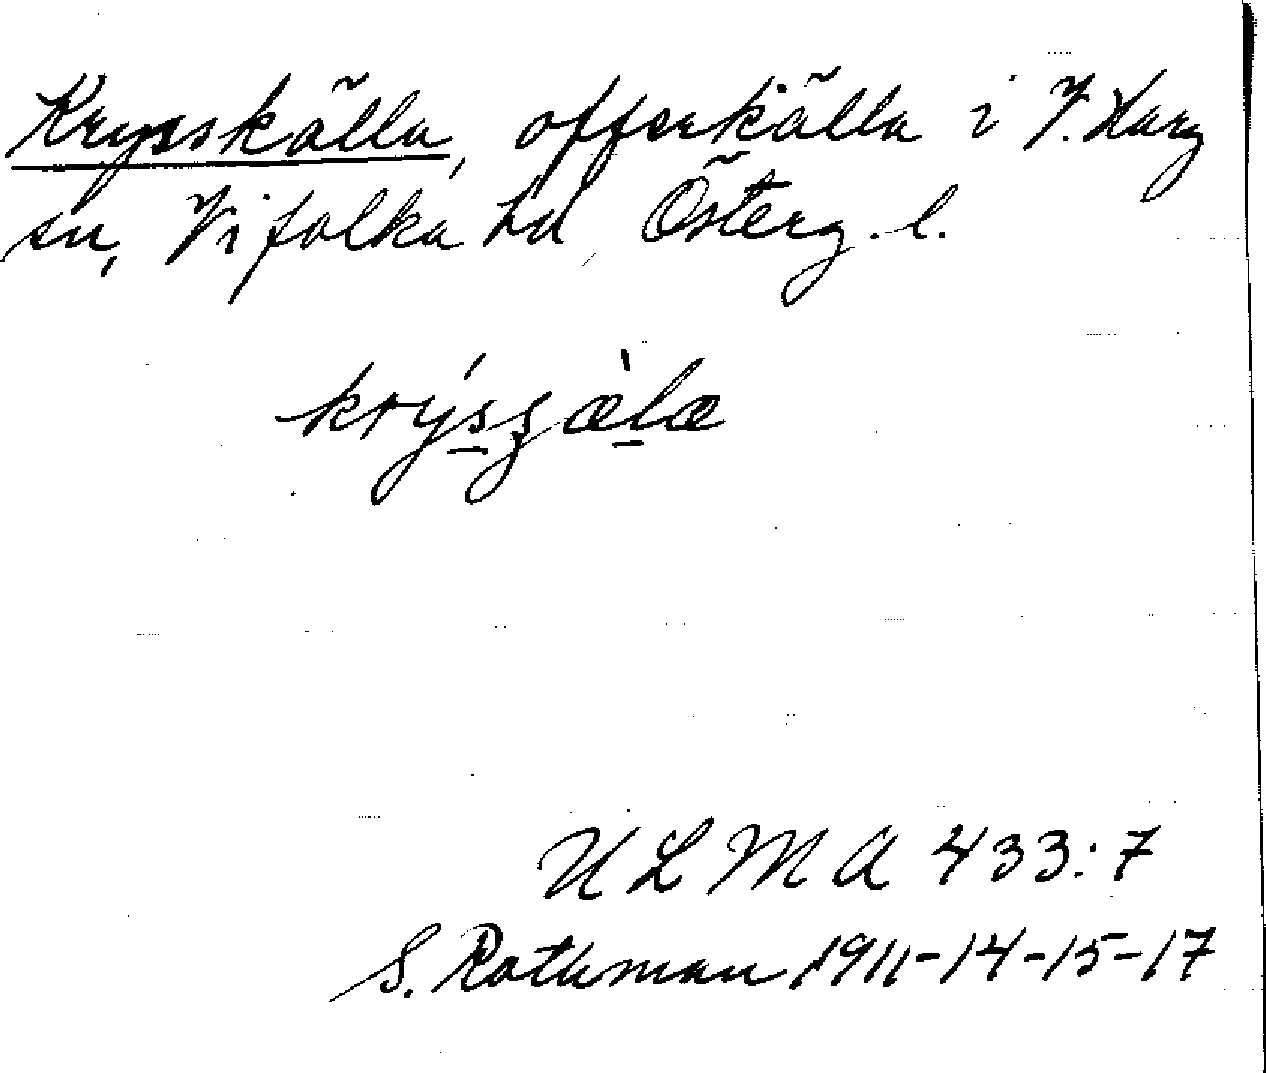 Krysskälla, offerkälla i V. Harg
sn, Vifolka hd, Österg. l.
krýsʒæ̀læ
ULMA 433:7
S. Rothman 1911-14-15-17